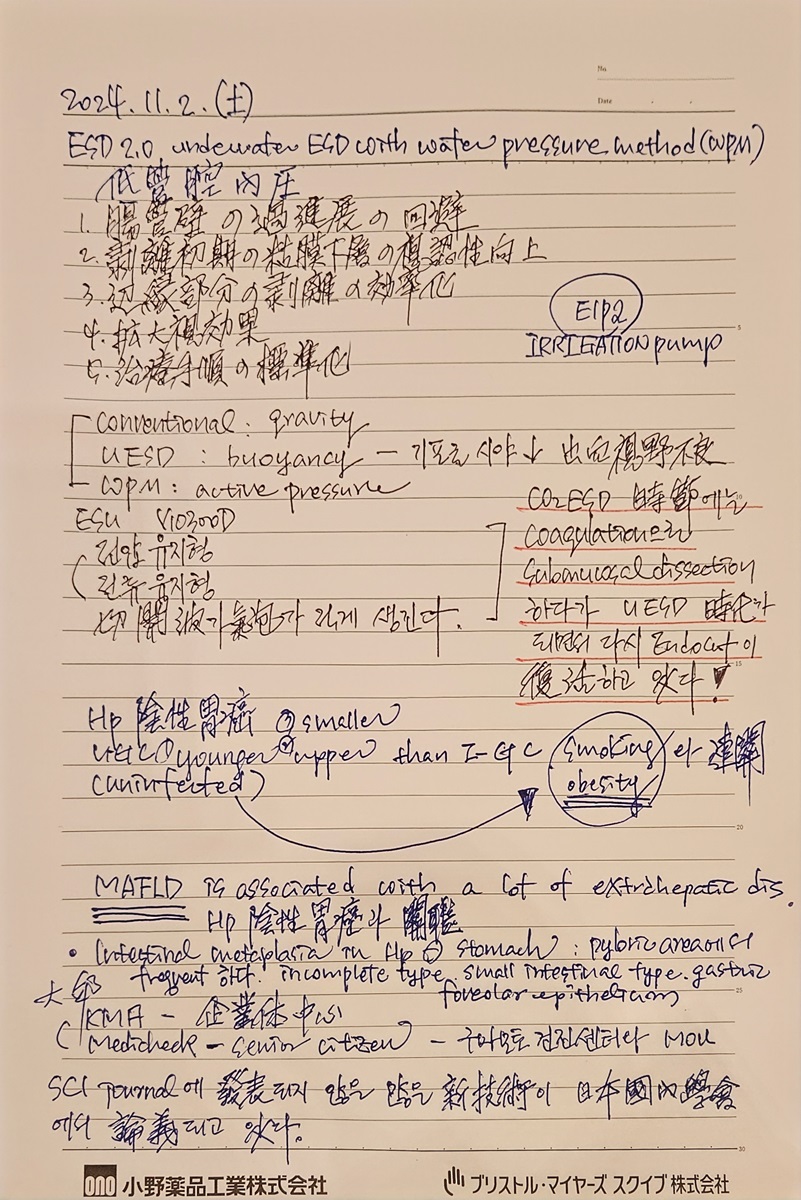 No.
Date . .
2024.11.2.(土)
ESD 2.0 underwater ESD with water pressure method (WPM)
低管腔内圧
1. 腸管壁の過進展の回避
2. 剥離初期の粘膜下層の視認性向上
3. 辺縁部分の剥離の効率化
4. 拡大視効果
5. 治療手順の標準化
EIP2
IRRIGATION pump
conventional : gravity
UESD : buoyancy — 기포로 시야↓ 出血視野不良
WPM : active pressure
ESU VIO300D
전압유지형
전류유지형
切開波가 氣泡가 적게 생긴다.
CO2ESD 時節에는
coagulation으로
submucosal dissection
하다가 UESD 時代가
되면서 다시 Endocut이
復活하고 있다!
Hp 陰性胃癌 ③ smaller
① younger ② upper than I-GC smoking 와 連關
(uninfected) obesity
MAFLD is associated with a lot of extrahepatic dis.
Hp 陰性胃癌과 關聯
• Intestinal metaplasia in Hp ⊖ stomach : pyloric area에서
frequent 하다. incomplete type. small intestinal type. gastric
foveolar epithelium
大邱
KMA - 企業体中心
Medicheck - senior citizen - 구마모토 검진센터와 MOU
SCI journal에 發表되지 않은 않은 新技術이 日本國內學會
에서 論義되고 있다.
5
10
15
20
25
30
ono 小野薬品工業株式会社
ブリストル・マイヤーズ スクイブ株式会社